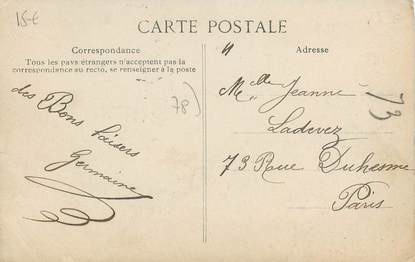 15€
CARTE POSTALE
Correspondance
Tous les pays étrangers n'acceptent pas la
correspondance au recto, se renseigner à la poste
des Bons baisers
Germaine
78)
Adresse
Melle Jeanne
Ladevez
73 Rue Duhesme
Paris
73